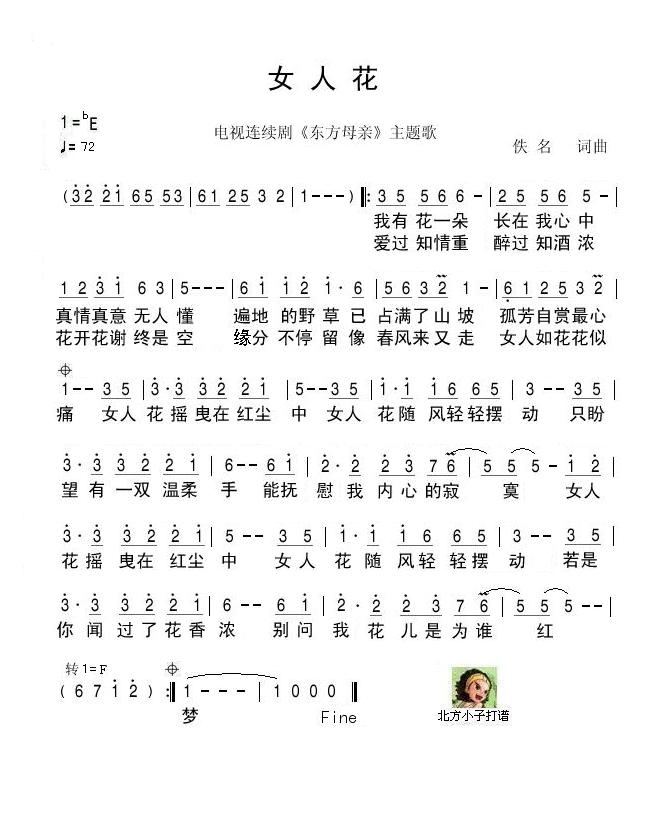 女人花
1=ᵇE
♩=72
电视连续剧《东方母亲》主题歌
佚名 词曲
(3̇2̇ 2̇1̇ 65 53 | 61̇ 25 3 2 | 1---) ‖: 35 566 - | 25 56 5 - |
我有 花一朵 长在 我心 中
爱过 知情重 醉过 知酒 浓
1 2 3̇ 1̇ 6 3 | 5--- | 6 1̇ 1̇ 2̇ 1̇·6 | 563 2 1 - | 6̣1 253 2 |
真情真意 无人 懂 遍地 的野 草已 占满了山坡 孤芳自赏最心
花开花谢 终是 空 缘分 不停 留像 春风来又走 女人如花花似
1-- 3 5 | 3̇·3̇ 3̇ 2̇ 2̇ 1̇ | 5-- 35 | 1̇·1̇ 1̇6 65 | 3-- 35 |
痛 女人 花摇 曳在红尘 中 女人 花随 风轻轻摆 动 只盼
3̇·3̇ 3̇ 2̇ 2̇ 1̇ | 6-- 6 1̇ | 2̇· 2̇ 2̇ 3̇ 7 6 | 5 5 5 - 1̇ 2̇ |
望有一双 温柔 手 能抚 慰我 内心的寂 寞 女人
3̇· 3̇ 3̇ 2̇ 2̇ 1̇ | 5-- 3 5 | 1̇·1̇ 1̇ 6 6 5 | 3-- 3 5 |
花摇 曳在 红尘 中 女人 花随 风轻 轻摆 动 若是
3̇· 3̇ 3̇ 2̇ 2̇ 1̇ | 6-- 6 1̇ | 2̇· 2̇ 2̇ 3̇ 7 6 | 5 5 5 -- |
你闻 过了花香 浓 别问 我花 儿是为谁 红
转1=F
(6 7 1̇ 2̇) :‖ 1--- | 1000 ‖
梦 Fine
北方小子打谱